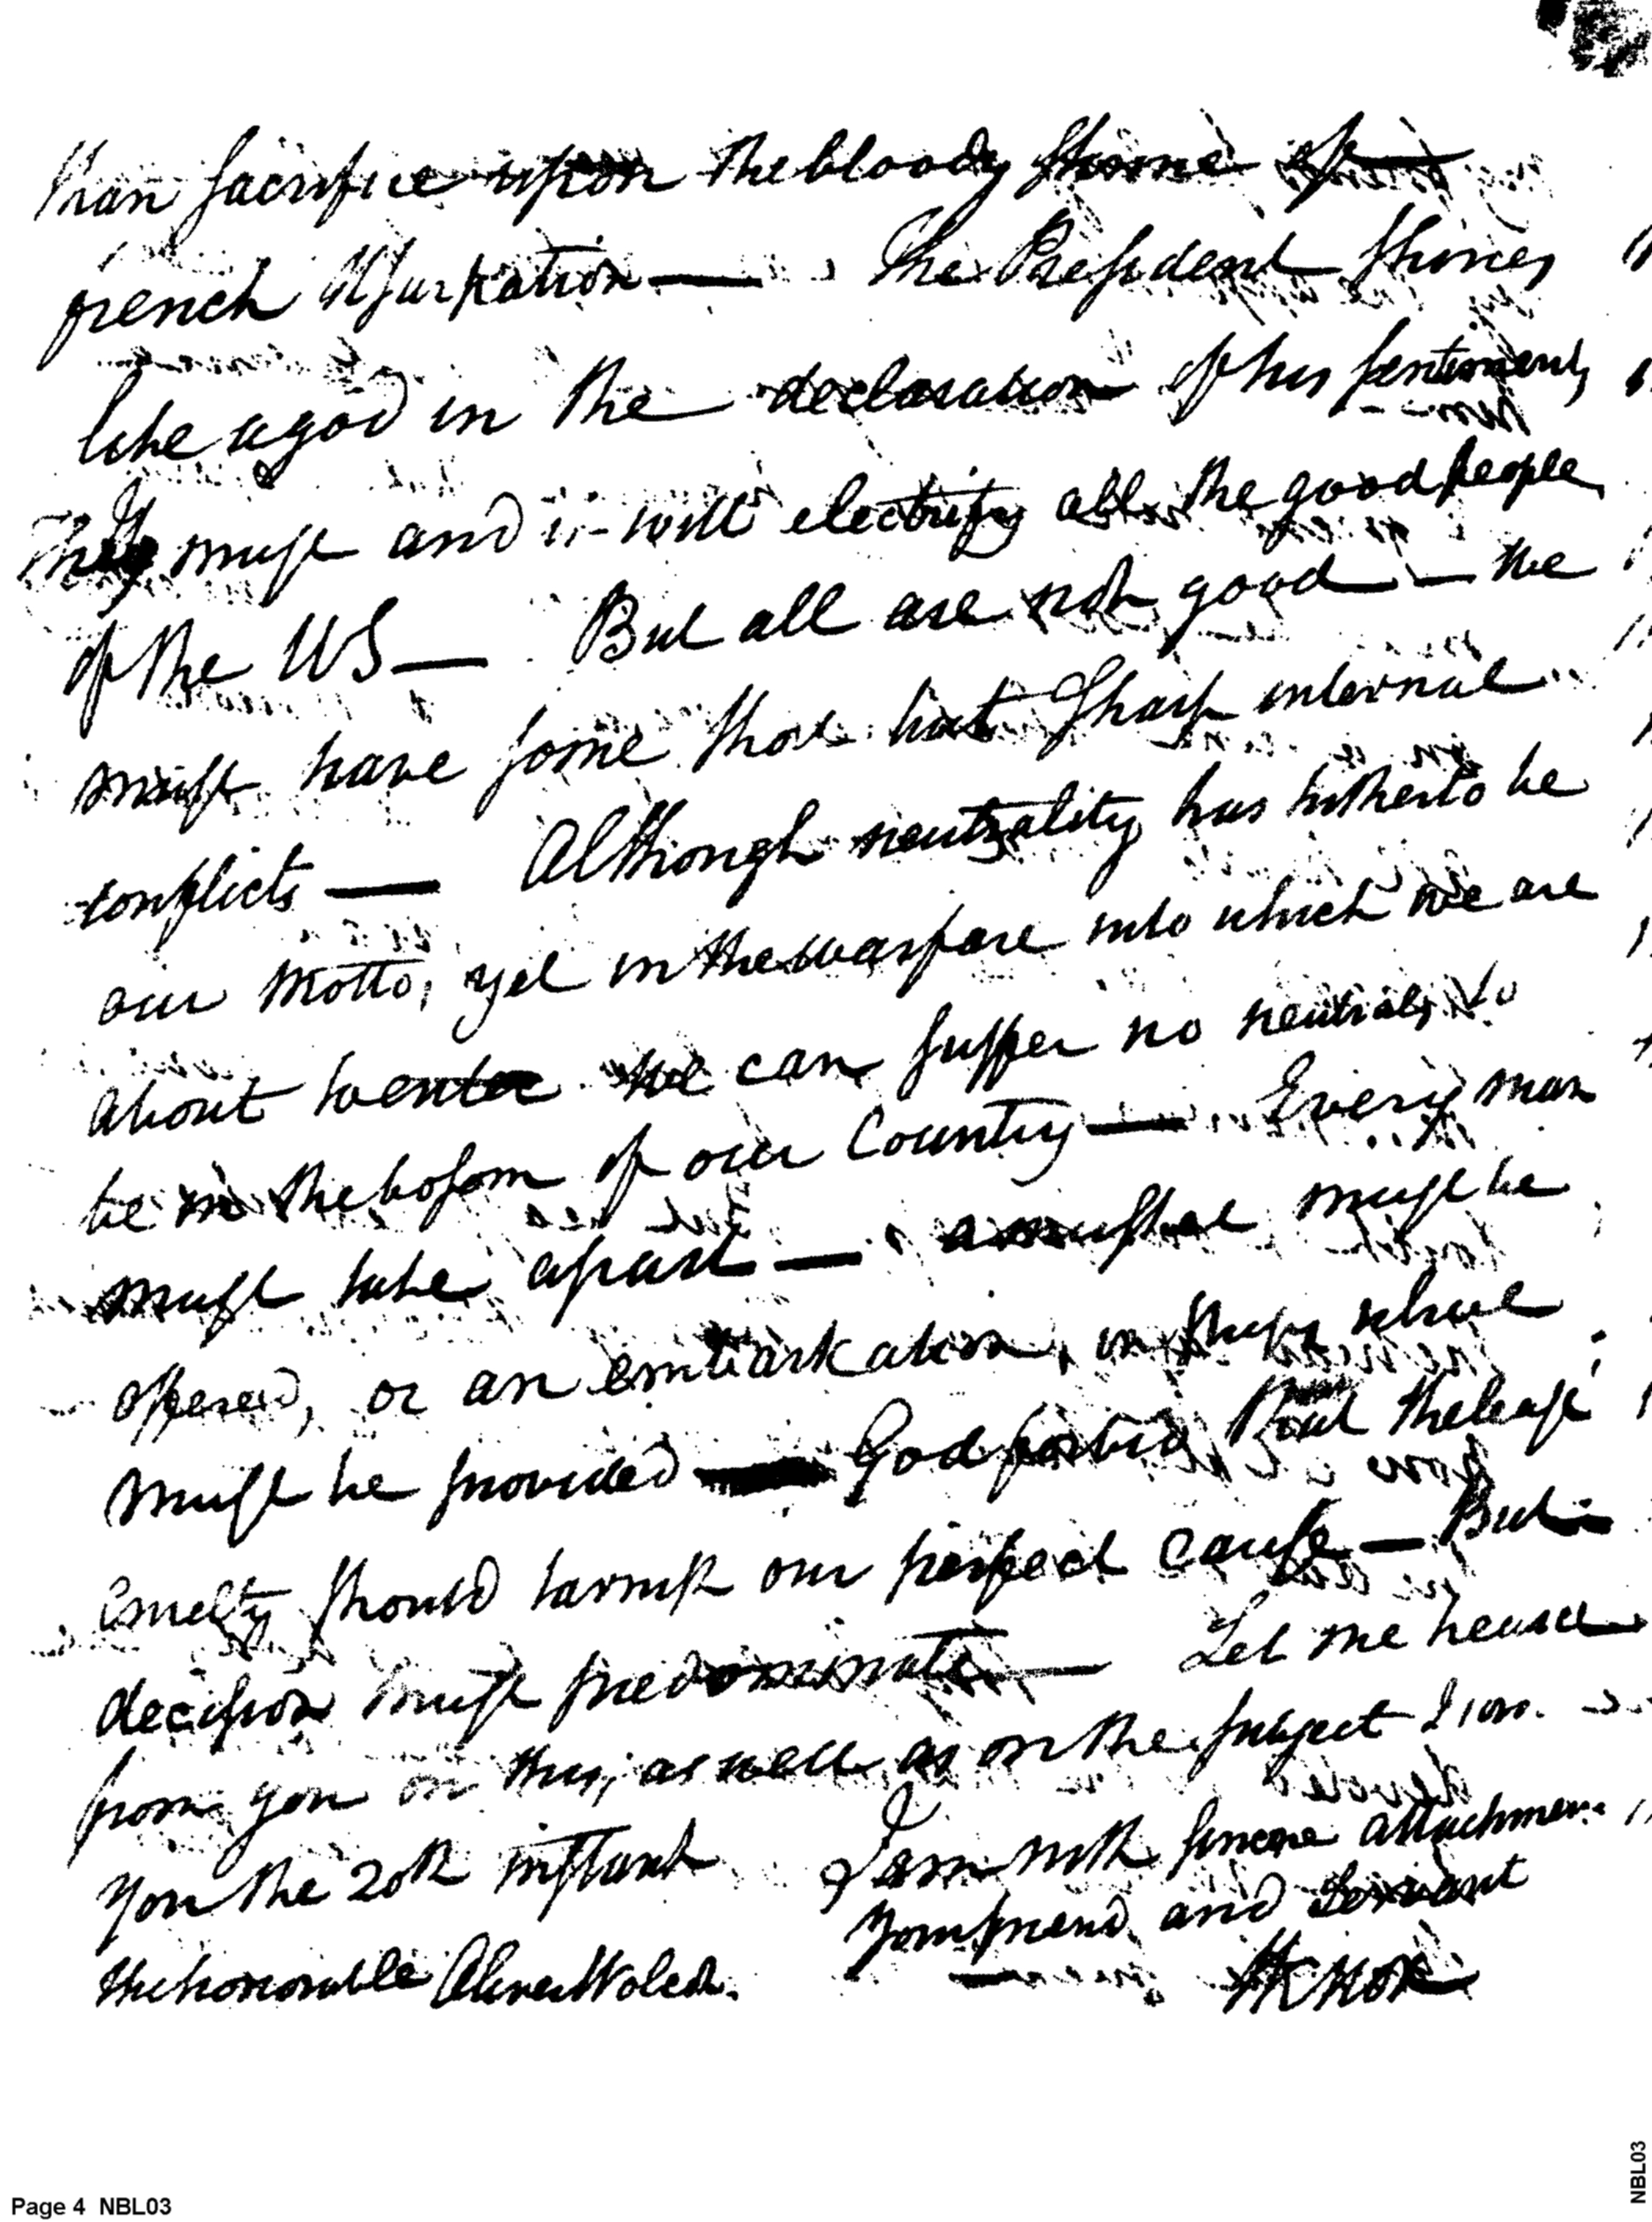 than sacrifice upon the bloody shrine of
french Usurpation — The President shines
like a god in the declaration of his sentiments
They must and it will electrify all the good people
of the US — But all are not good — We
must have some short but Sharp internal
conflicts — Although neutrality has hitherto be
our Motto, yet in the warfare into which we are
about to enter we can suffer no neutrals to
be in the bosom of our Country — Every man
must take a part — a musket must be
offered, or an embarkation, in ships where
must be provided — God forbid that the least
Cruelty should tarnish our perfect cause — But
decision must predominate — Let me hear
from you on this, as well as on the subject I
you the 20th instant I am with sincere attachmen
Your friend and Servant
HKnox
The honorable Oliver Wolcott.
Page 4 NBL03
NBL03